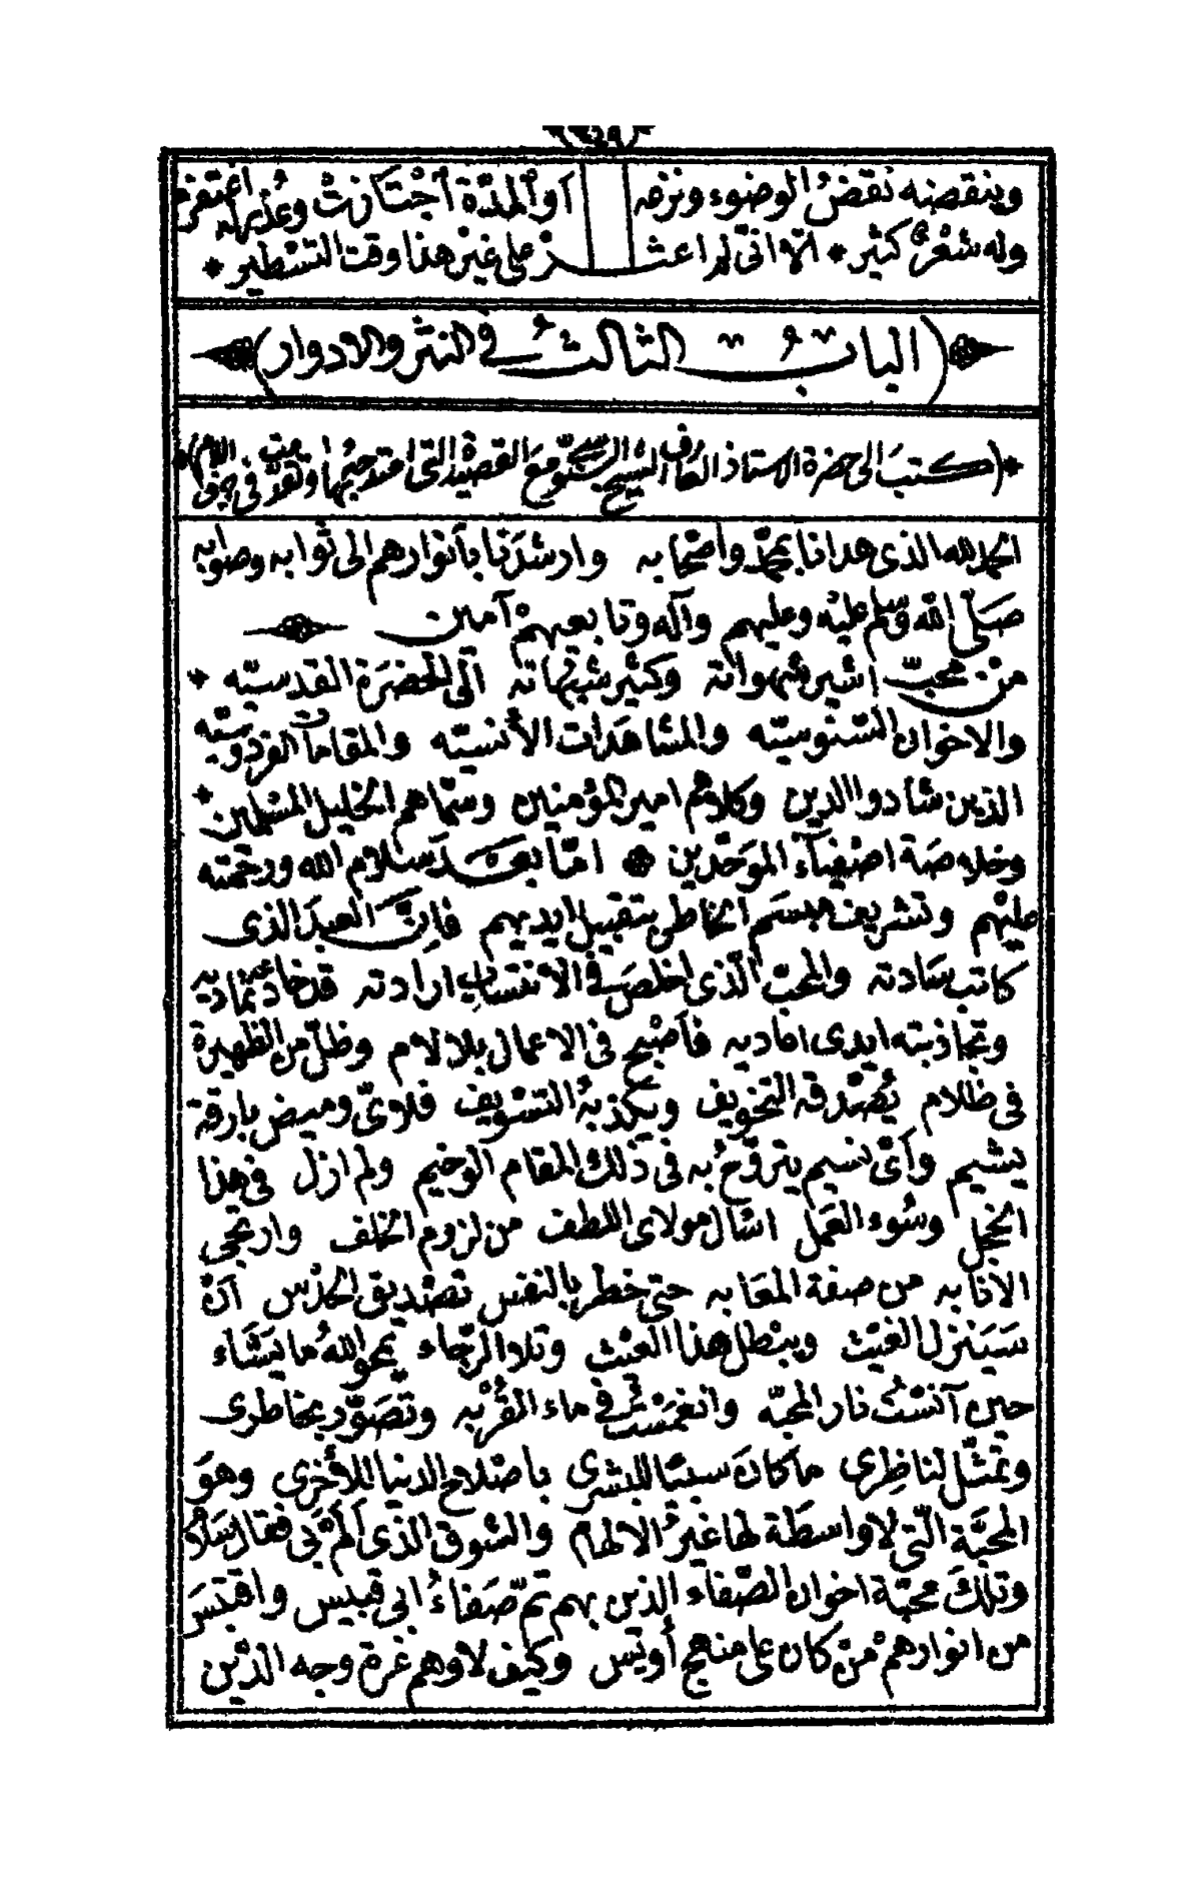 وينقصنه نقض الوضوء ونزفه أو المدّة اجتازت وعذر له اغتفره
وله شعر كثير * الا انى لم اعثر على غير هذا وقت التسطير *
(الباب الثالث فى النثر والادوار)
*(كتب الى حضرة الاستاذ العارف الشيخ السنوسى مع القصيدة التى امتدحه بها وهى فى حرف اللام)*
الحمد لله الذى هدانا بمحمّد واصحابه وارشدنا بأنوارهم الى ثوابه وصوابه
صَلّى الله وسلّم عليه وعليهم وآله وتابعيهم آمين
من محبّ اسير شهواته وكثير شبهاته الى الحضرة القدسيّه *
والاخوان السّنوسيّه والمشاهدات الأنسيّه والمقامات الفردوسيّه
الذين شادوا الدين وكلاهم امير المؤمنين وسمّاهم الخليل المسلمين *
وخلاصة اصفيآء الموحّدين * امّا بعد سلام الله ورحمته
عليهم وتشريف مبسم الخاطر بتقبيل ايديهم فإنّ العبد الذى
كاتب سادته والمحبّ الّذى اخلص فى الانتساب ارادته قد خادعته تماديه
وتجاذبته ايدى اماديه فأصبح فى الاعمال بلا لام وظلّ من الظهيرة
فى ظلام يُصدّقه التخويف ويكذبه التسويف فلا مّى وميض بارقة
يشيم وأىّ نسيم يتروّح به فى ذلك المقام الوخيم ولم ازل فى هذا
الخجل وسُوء العمل اسأل مولاى اللطف من لزوم الخلف وارتجى
الانابه من صفة المعابه حتى خطر بالنفس تصديق الحدس أنْ
سينزل الغيث ويبطل هذا العيث وتلا الرّجاء يمحو اللهُ ما يَشَاء
حين آنستُ نار المحبّه وانغمستُ فى ماء القُرْبه وتصوّر بخاطرى
وتمثّل لناظرى ما كان سببًا للبشرى باصلاح الدنيا للأخرى وهو
المحبّة الّتى لا واسطة لها غيرُ الالهام والشوق الذى ألمّ بى فقال سلام
وتلك محبّة اخوان الصّفآء الذين بهم تمّ صَفاءُ ابى قبيس واقتبسَ
من انوارهمْ منْ كان على منهج أويس وكيف لا وهم غرة وجه الدّين